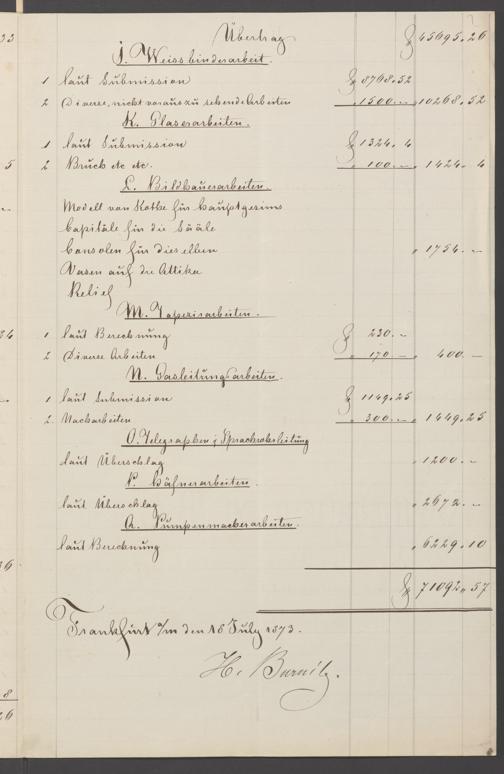 Übertrag fl 45695.26
J. Weissbinderarbeit.
1 laut Submission fl 8768.52
2 Diverse, nicht voraus zu sehende Arbeiten " 1500.— " 10268.52
K. Glaserarbeiten.
1 laut Submission fl 1324.4
2 Bruch etc etc. " 100.— " 1424.4
L. Bildhauerarbeiten.
Modell von Rothe für Hauptgesims
Capitäle für die Sääle
Consolen für dieselben " 1754.—
Vasen auf die Attika
Relief
M. Tapezirarbeiten.
1 laut Berechnung fl 230.—
2 Diverse Arbeiten " 170.— " 400.—
N. Gasleitungsarbeiten.
1 laut Submission fl 1149.25
2. Nacharbeiten " 300.— " 1449.25
O. Telegraphen & Sprachrohrleitung
laut Überschlag " 1200.—
P. Häfnerarbeiten.
laut Überschlag " 2672.—
Q. Pumpenmacherarbeiten.
laut Berechnung " 6229.10
fl 71092.57
Frankfurt a/m den 18 July 1873.
H. Burnitz.